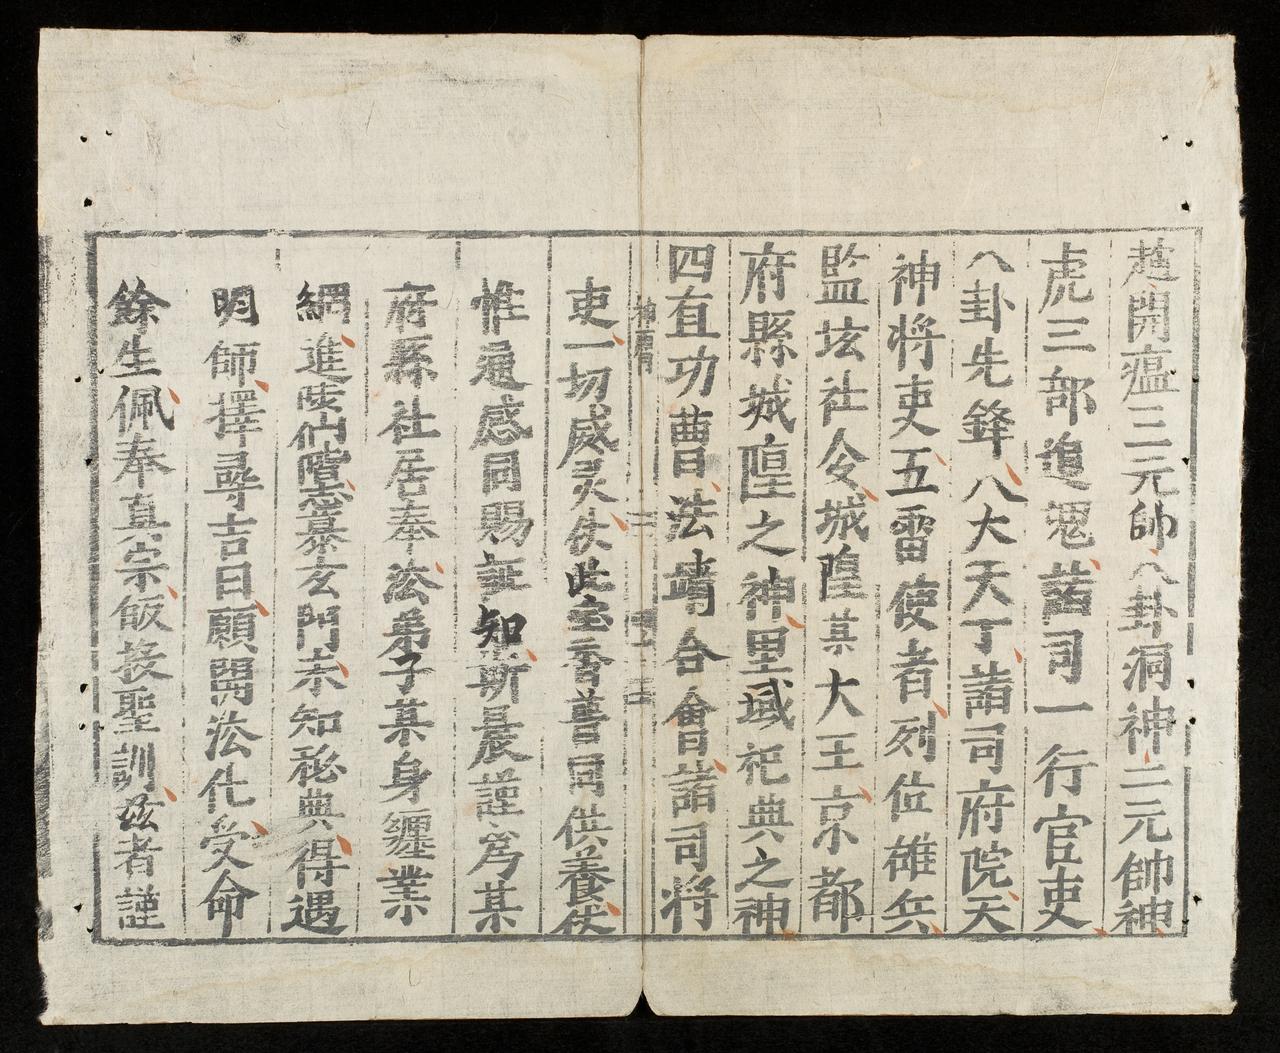 趙開瘟三元帥八卦洞神二元帥神
虎三部追鬼諸司一行官吏
八卦先鋒八大天丁諸司府院天
神将吏五雷使者列位雄兵
監坛社令城隍某大王京都
府縣城隍之神里域祀典之神
四直功曹法靖合會諸司将
吏一切威灵伏此宝香普同供養伏
惟遍感同賜証知斯晨謹為某
府縣社居奉法弟子某身纒業
網進陟仙階志慕玄門未知秘典得遇
明師擇尋吉日願開法化受命
餘生佩奉真宗皈投聖訓兹者謹